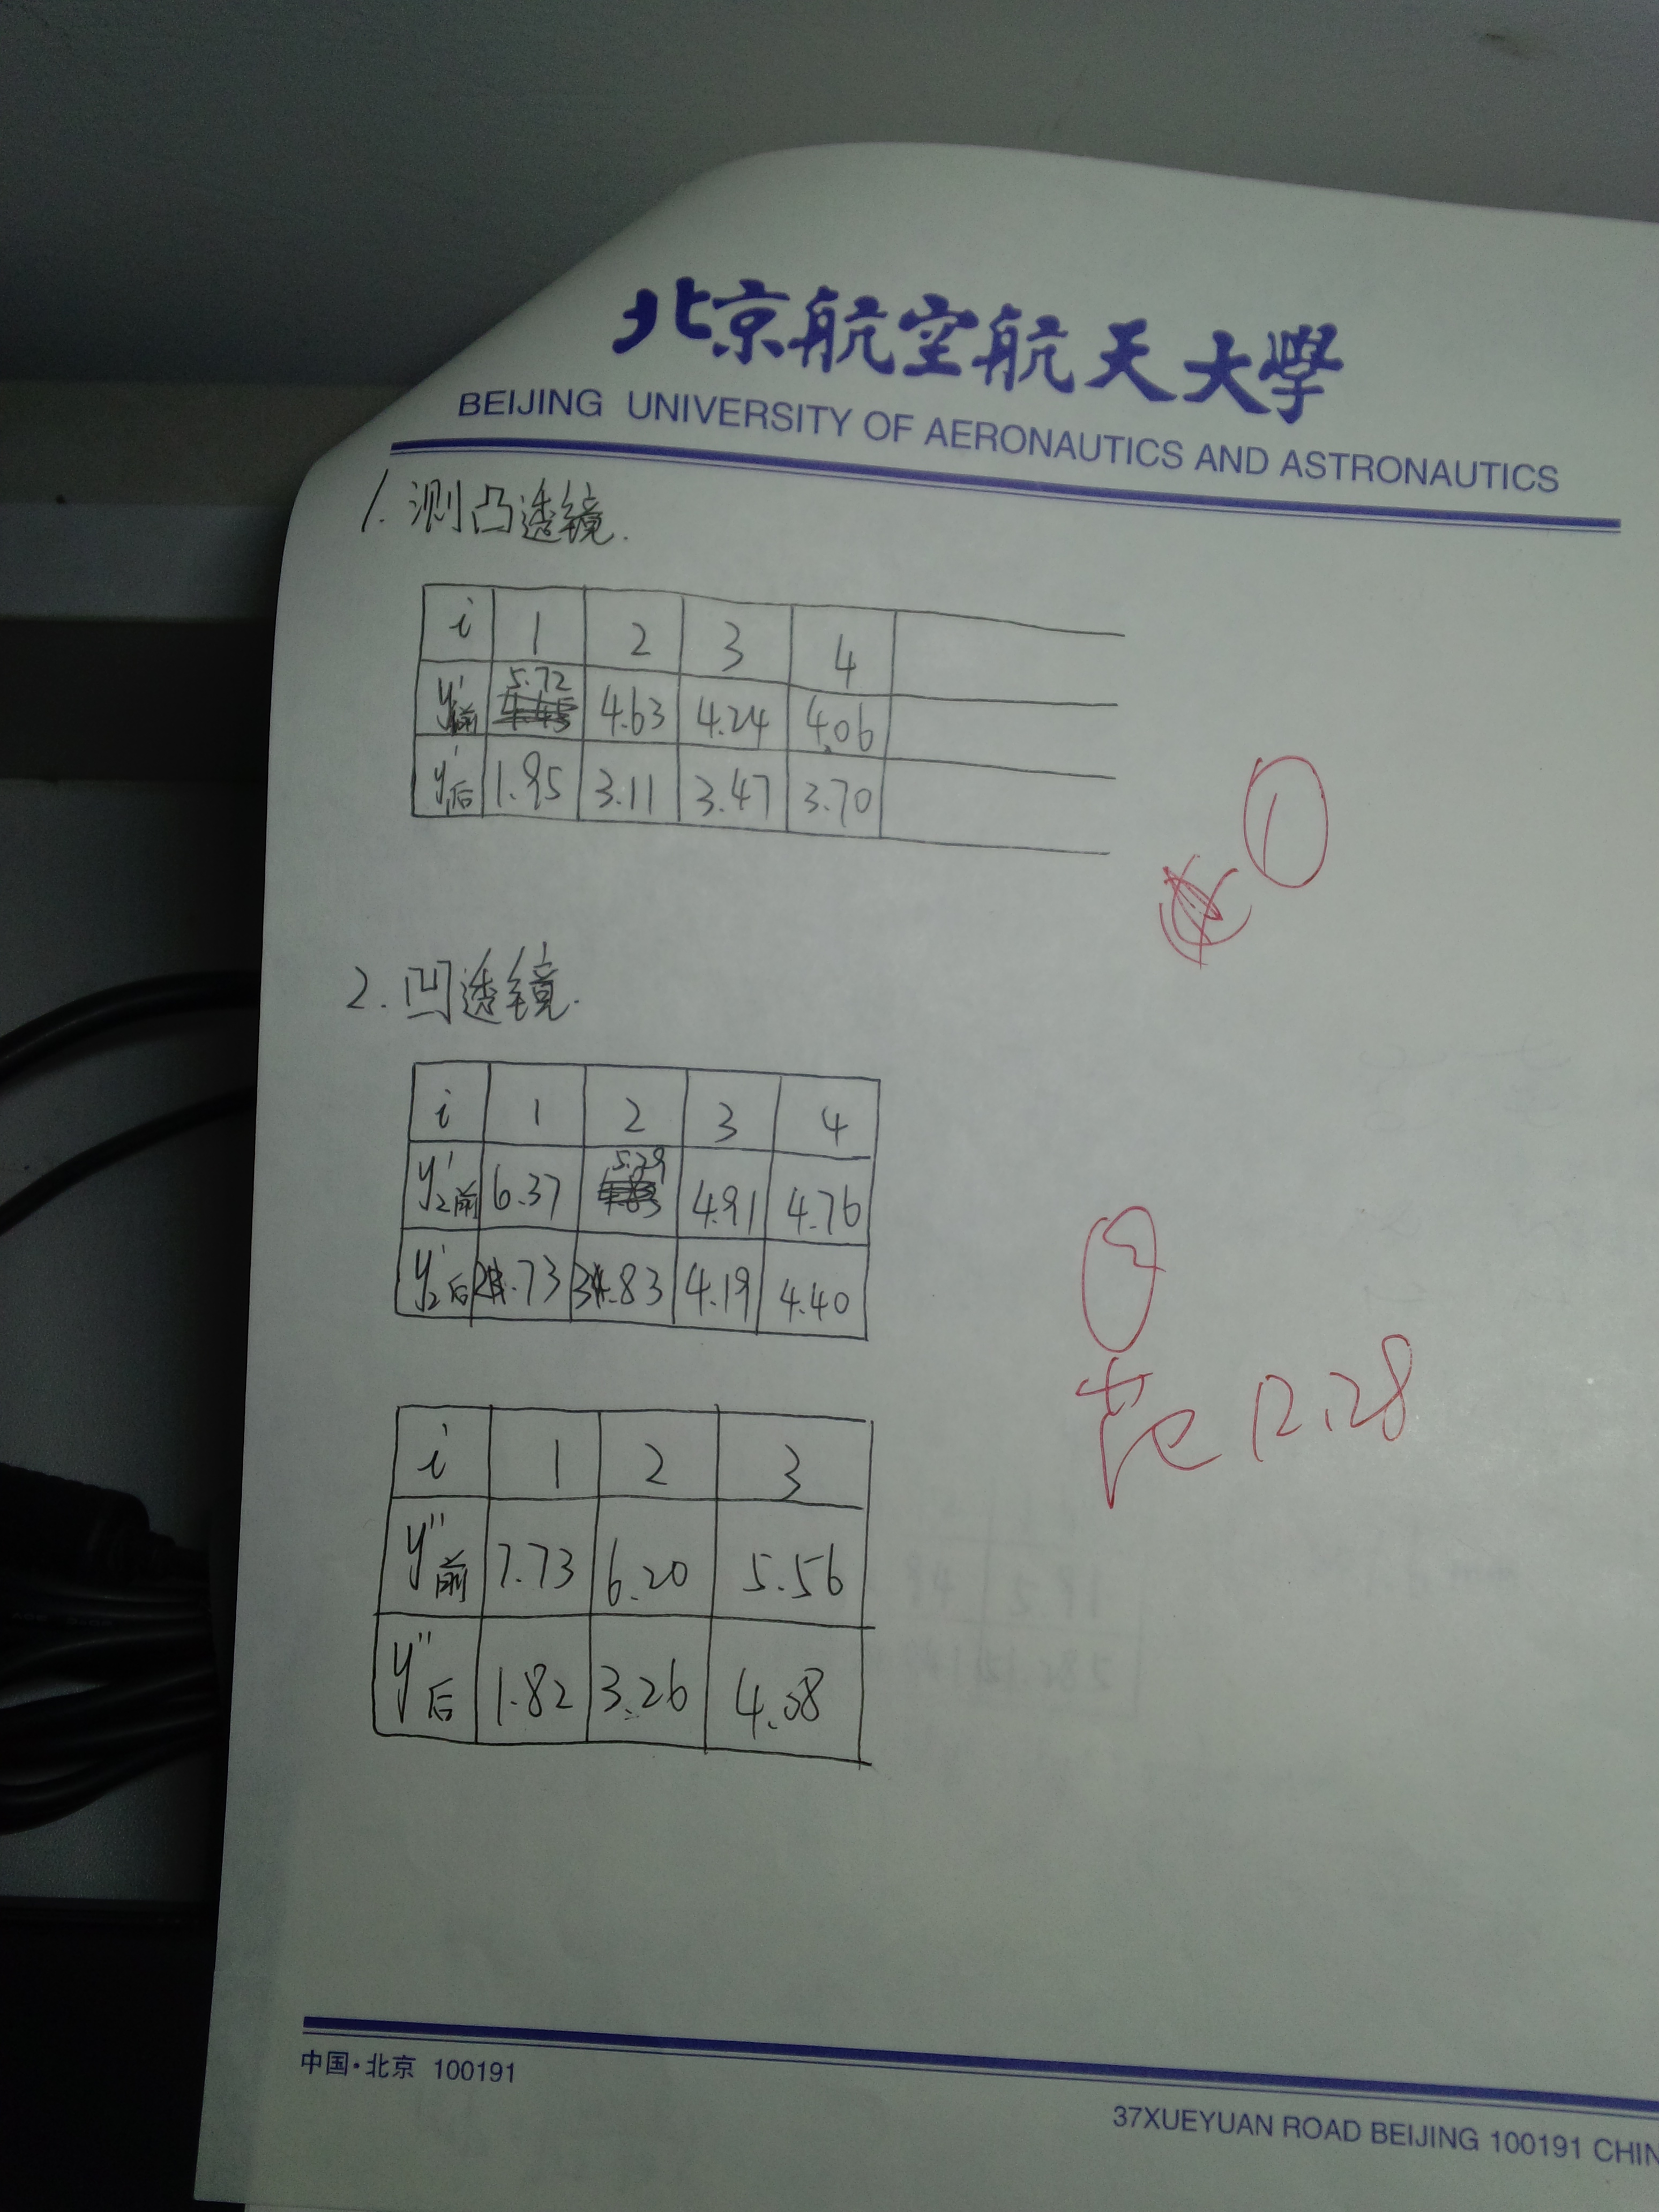 北京航空航天大學
BEIJING UNIVERSITY OF AERONAUTICS AND ASTRONAUTICS
1. 测凸透镜.
i 1 2 3 4
y'₁前 5.72 4.63 4.24 4.06
y'₁后 1.95 3.11 3.47 3.70
①
2. 凹透镜.
i 1 2 3 4
y'₂前 6.37 5.29 4.91 4.76
y'₂后 2.73 3.83 4.19 4.40
②
12.28
i 1 2 3
y''前 7.73 6.20 5.56
y''后 1.82 3.26 4.08
中国·北京 100191
37XUEYUAN ROAD BEIJING 100191 CHIN